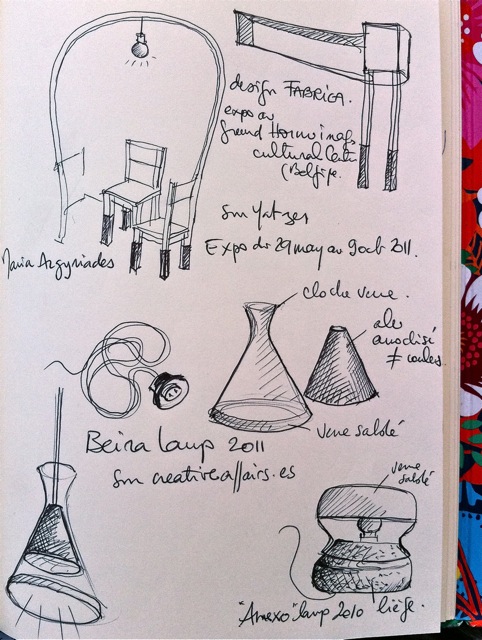 design FABRICA.
expo au
grand Hornu images
cultural Center
(Belgique.
sur Yatzer
Expo du 29 may au 9 oct 2011.
Maria Argyriades
cloche verre.
alu
anodisé
≠ couleurs
verre sablé
Beira lamp 2011
sur creativeaffairs.es
verre
sablé
"Anexo" lamp 2010 liège.